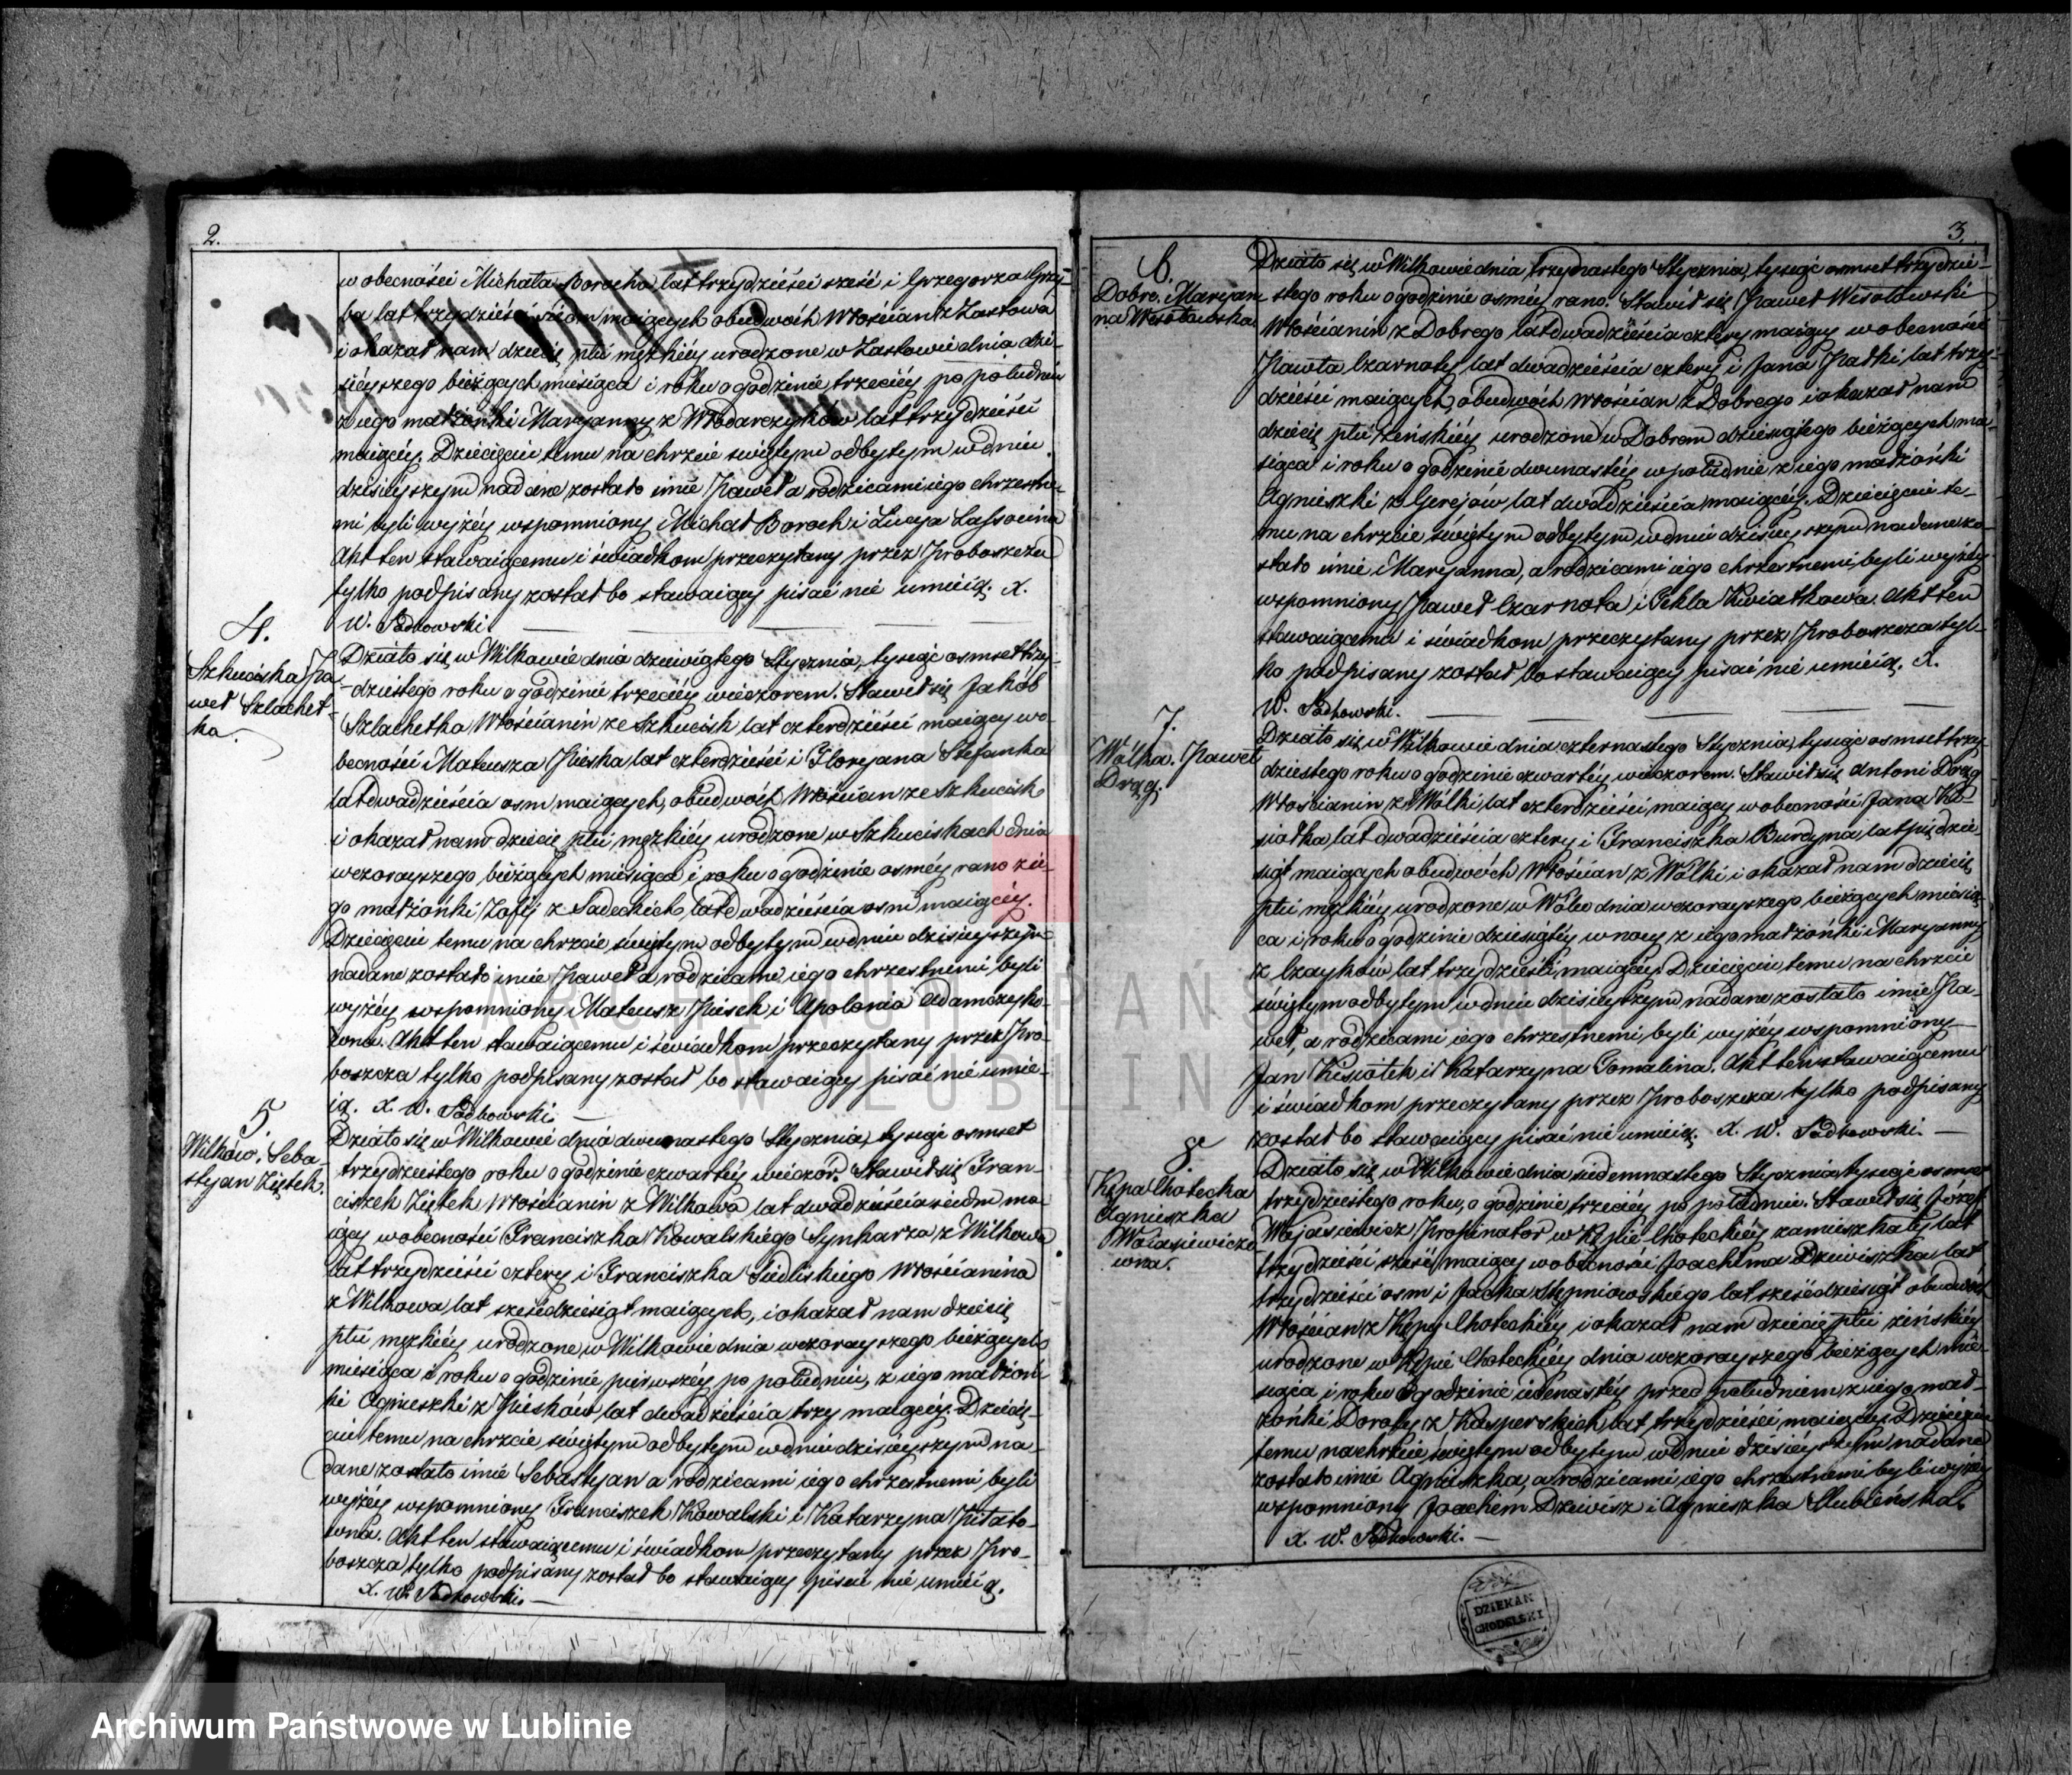 2.
w obecności Michała Borocha lat trzydzieści sześć i Grzegorza Grzy-
ba lat trzydzieści siedm maiących obudwóch Włościan z Zastowa
i okazał nam dziecię płci męzkiéy urodzone w Zastowie dnia dzi-
siéyszego bieżących miesiąca i roku o godzinie trzeciéy po południu
z iego małżonki Maryanny z Włodarczyków lat trzydzieści
maiącéy. Dziecięciu temu na chrzcie świętym odbytym w dniu
dzisieyszym nadane zostało imie Paweł a rodzicami iego chrzestne-
mi byli wyżéy wspomniony Michał Boroch i Łucya Lassocina
Akt ten stawaiącemu i świadkom przeczytany przez Proboszcza
tylko podpisany został bo stawaiący pisać nie umieią. X.
W. Sadkowski.
4.
Szkuciska Pa-
weł Szlachet-
ka.
Działo się w Wilkowie dnia dziewiątego Stycznia, tysiąc osmset trzy-
dziestego roku o godzinie trzeciéy wieczorem. Stawił się Jakób
Szlachetka Włościanin ze Szkucisk lat czterdzieści maiący w o-
becności Mateusza Pieska lat czterdzieści i Floryana Stefanka
lat dwadzieścia osm maiących, obudwóch Włościan ze Szkucisk
i okazał nam dziecię płci męzkiéy urodzone w Szkuciskach dnia
wczorayszego bieżących miesiąca i roku o godzinie osméy rano z ie-
go małżonki Zofij z Sadeckich, lat dwadzieścia osm maiącéy.
Dziecięciu temu na chrzcie świętym odbytym w dniu dzisieyszym
nadane zostało imie Paweł a rodzicami iego chrzestnemi byli
wyżéy wspomniony Mateusz Piesek i Apolonia Adamczyko-
wna. Akt ten stawaiącemu i świadkom przeczytany przez Pro-
boszcza tylko podpisany został bo stawaiący pisać nie umie-
ią. X. W. Sadkowski.
5.
Wilków. Seba-
styan Ziętek.
Działo się w Wilkowie dnia dwunastego Stycznia, tysiąc osmset
trzydziestego roku o godzinie czwartéy wieczór. Stawił się Fran-
ciszek Ziętek Włościanin z Wilkowa lat dwadzieścia siedm ma-
iący w obecności Franciszka Kowalskiego Synkarza z Wilkowa
lat trzydzieści cztery i Franciszka Siedliskiego Włościanina
z Wilkowa, lat sześćdziesiąt maiących, i okazał nam dziecię
płci męzkiéy urodzone w Wilkowie dnia wczorayszego bieżących
miesiąca i roku o godzinie pierwszéy po południu, z iego małżon-
ki Agnieszki z Piesków lat dwadzieścia trzy maiącéy. Dziecię-
ciu temu na chrzcie świętym odbytym w dniu dzisieyszym na-
dane zostało imie Sebastyan a rodzicami iego chrzestnemi byli
wyżéy wspomniony Franciszek Kowalski i Katarzyna
wna. Akt ten stawaiącemu i świadkom przeczytany przez Pro-
boszcza tylko podpisany został bo stawaiący pisać nie umieią.
X. W. Sadkowski.
3.
6.
Dobre. Maryan-
na Wesołowska.
Działo się w Wilkowie dnia trzynastego Stycznia, tysiąc osmset trzydzie-
stego roku o godzinie osméy rano. Stawił się Paweł Wesołowski
Włościanin z Dobrego lat dwadzieścia cztery maiący w obecności
Pawła Czarnoty lat dwadzieścia cztery i Jana Padki lat trzy-
dzieści maiących, obudwóch Włościan z Dobrego i okazał nam
dziecię płci żeńskiéy urodzone w Dobrem dziesiątego bieżących mie-
siąca i roku o godzinie dwunastéy w południe z iego małżonki
Agnieszki z Gerejów lat dwadzieścia maiącéy. Dziecięciu te-
mu na chrzcie świętym odbytym w dniu dzisieyszym nadane zo-
stało imie Maryanna, a rodzicami iego chrzestnemi byli wyżéy
wspomniony Paweł Czarnota i Tekla Kwiatkowa. Akt ten
stawaiącemu i świadkom przeczytany przez Proboszcza tyl-
ko podpisany został bo stawaiący pisać nie umieią. X.
W. Sadkowski.
7.
Wólka. Paweł
Drąg.
Działo się w Wilkowie dnia czternastego Stycznia, tysiąc osmset trzy-
dziestego roku o godzinie czwartéy wieczorem. Stawił się Antoni Drąg
Włościanin z Wólki, lat czterdzieści maiący w obecności Jana Ko-
siołka lat dwadzieścia cztery i Franciszka Burdyna, lat pięćdzie-
siąt maiących obudwóch Włościan z Wólki i okazał nam dziecię
płci męzkiéy urodzone w Wólce dnia wczorayszego bieżących miesią-
ca i roku o godzinie dziesiątéy w nocy z iego małżonki Maryanny
z Czayków lat trzydzieści maiącéy. Dziecięciu temu na chrzcie
świętym odbytym w dniu dzisieyszym nadane zostało imie Pa-
weł, a rodzicami iego chrzestnemi byli wyżéy wspomniony
Jan Kosiołek i Katarzyna Tomalina. Akt ten stawaiącemu
i świadkom przeczytany przez Proboszcza tylko podpisany
został bo stawaiący pisać nie umieią. X. W. Sadkowski.
8.
Kępa Chotecka
Agnieszka
Woiasiewiczo-
wna.
Działo się w Wilkowie dnia siedemnastego Stycznia tysiąc osmset
trzydziestego roku, o godzinie trzeciéy po południu. Stawił się Józef
Wojasiewicz Propinator w Kępie Choteckiéy zamieszkały lat
trzydzieści sześć maiący w obecności Joachima Dziewiszka lat
trzydzieści osm i Jacka Stępniowskiego lat sześćdziesiąt obudwóch
Włościan z Kępy Choteckiéy i okazał nam dziecię płci żeńskiéy
urodzone w Kępie Choteckiéy dnia wczorayszego bieżących mie-
siąca i roku o godzinie iedenastéy przed południem z iego mał-
żonki Doroty z Kasperskich, lat trzydzieści maiącéy. Dziecięciu
temu na chrzcie świętym odbytym w dniu dzisiéyszym nadane
zostało imie Agnieszka, a rodzicami iego chrzestnemi byli wyżéy
wspomniony Joachem Dziewisz i Agnieszka Słubińska.
X. W. Sadkowski.
DZIEKAN
CHODELSKI
ARCHIWUM PAŃSTWOWE
W LUBLINIE
Archiwum Państwowe w Lublinie